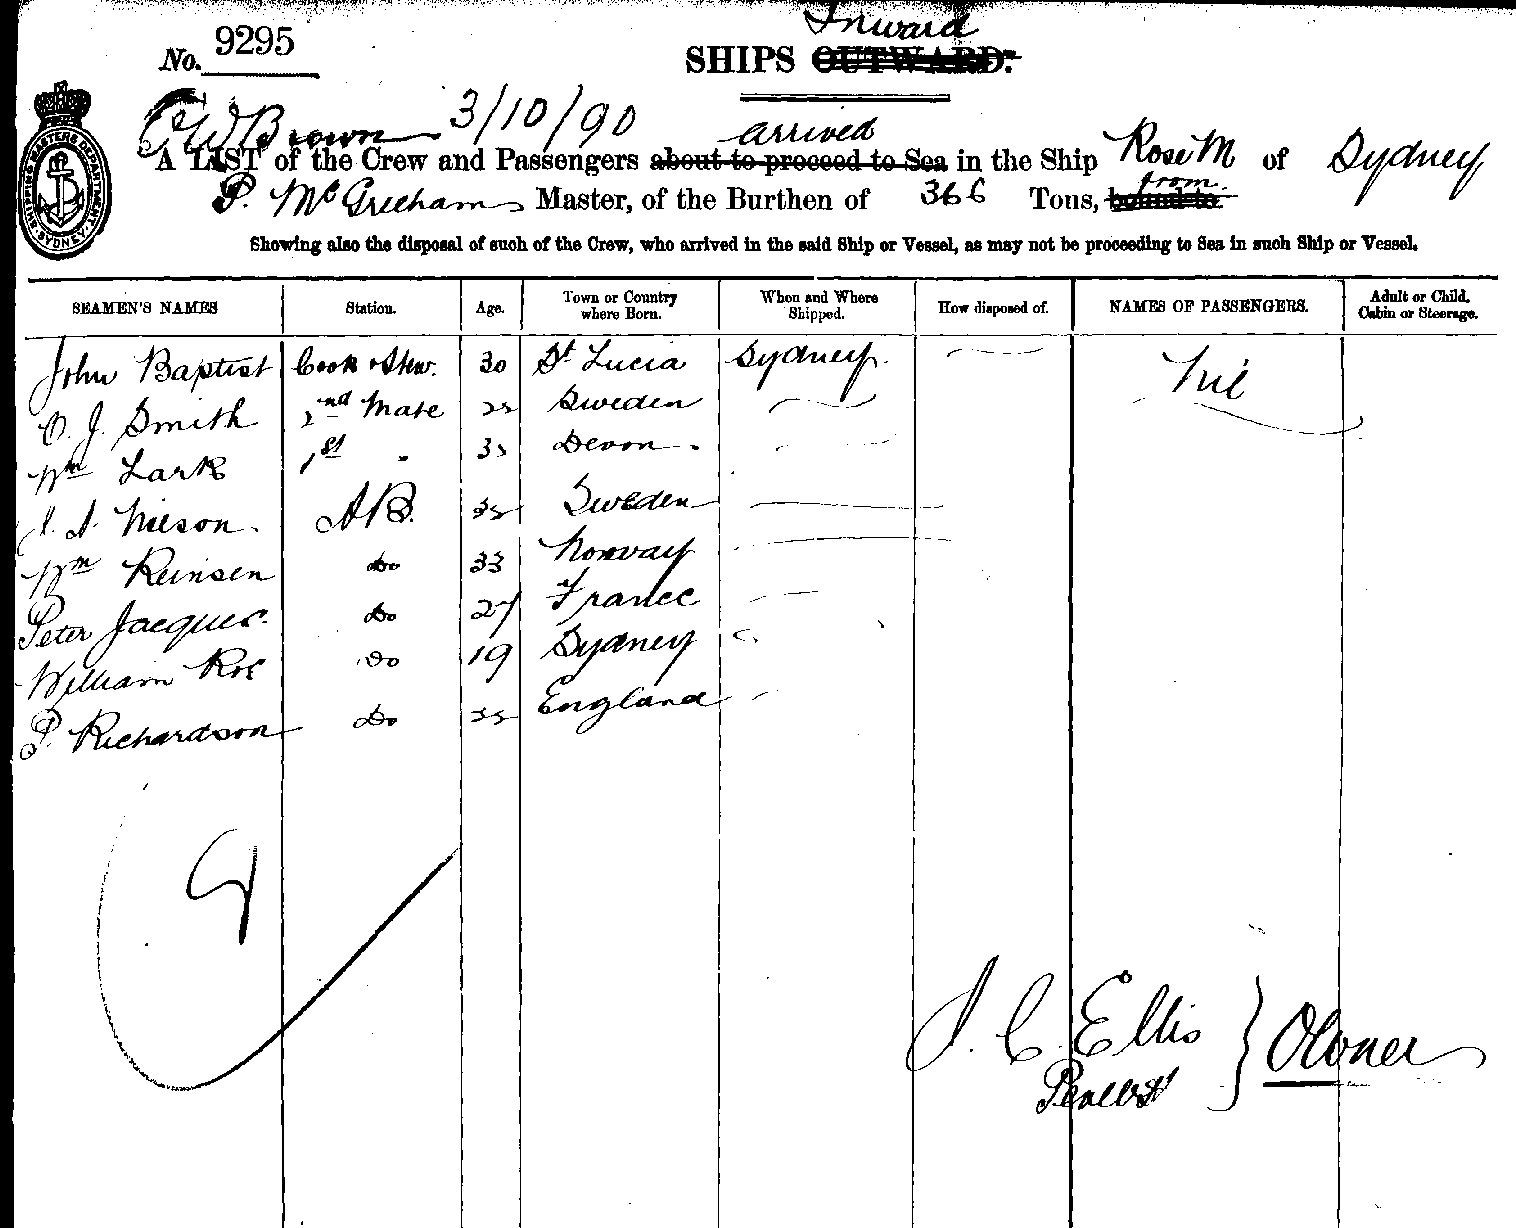 Inward
No. 9295
SHIPS OUTWARD.
C W Brown 3/10/90 arrived
A LIST of the Crew and Passengers about to proceed to Sea in the Ship Rose M of Sydney
P. McGreeham Master, of the Burthen of 366 Tons, bound to from
SHIPPING MASTERS DEPARTMENT SYDNEY
Showing also the disposal of such of the Crew, who arrived in the said Ship or Vessel, as may not be proceeding to Sea in such Ship or Vessel.
SEAMEN'S NAMES Station. Age. Town or Country where Born. When and Where Shipped. How disposed of. NAMES OF PASSENGERS. Adult or Child. Cabin or Steerage.
John Baptist Cook & Stew. 30 St Lucia Sydney Nil
O. J. Smith 2nd Mate Sweden
Wm Lark 1st " 35 Devon
Nilson A B. Sweden
Wm Reinsen Do 33 Norway
Peter Jacques Do 27 France
William Roe Do 19 Sydney
P. Richardson Do England
J. C. Ellis
Owner